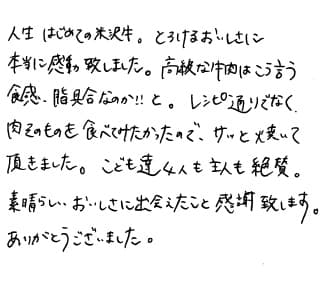 人生はじめての米沢牛。とろけるおいしさに
本当に感動致しました。高級な牛肉はこう言う
食感、脂具合なのか!!と。レシピ通りでなく、
肉そのものを食べてみたかったので、サッと焼いて
頂きました。こども達4人も主人も絶賛。
素晴らしいおいしさに出会えたこと感謝致します。
ありがとうございました。